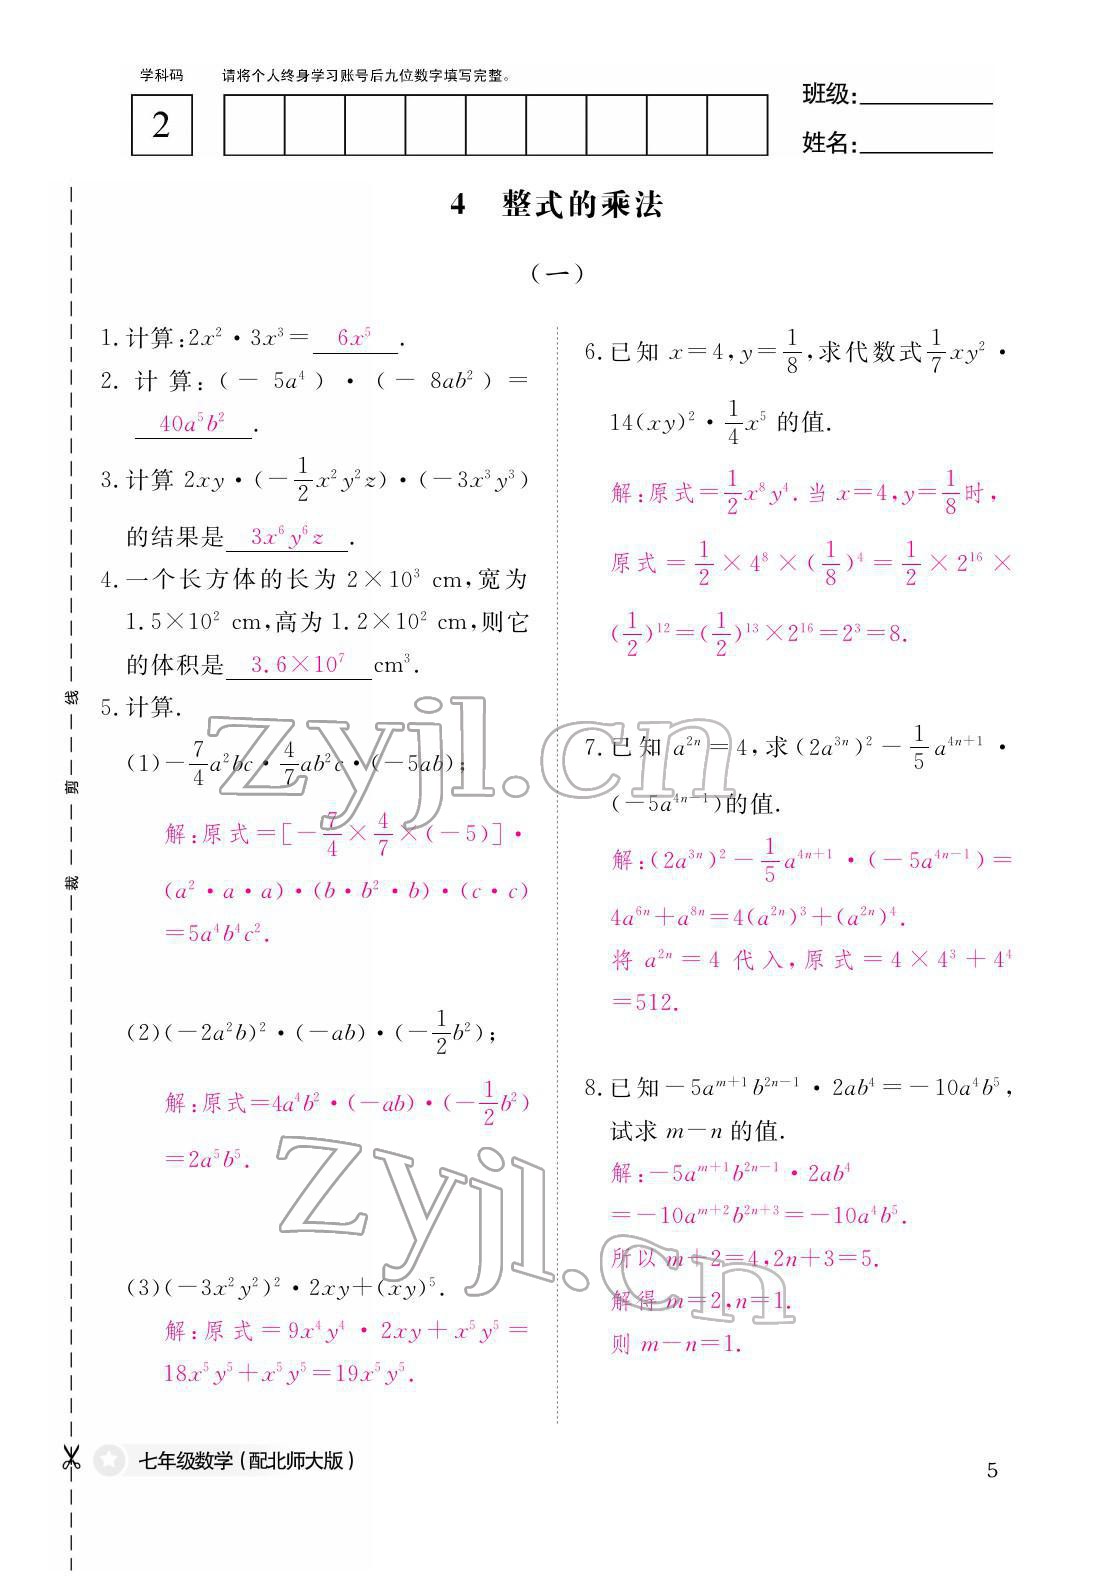 学科码
请将个人终身学习账号后九位数字填写完整。
2
班级:
姓名:
4 整式的乘法
(一)
1.计算:2x²·3x³=6x⁵.
2.计算:(-5a⁴)·(-8ab²)=
40a⁵b².
3.计算 2xy·(-1/2x²y²z)·(-3x³y³)
的结果是3x⁶y⁶z.
4.一个长方体的长为 2×10³ cm,宽为
1.5×10² cm,高为 1.2×10² cm,则它
的体积是3.6×10⁷cm³.
5.计算.
(1)-7/4a²bc·4/7ab²c·(-5ab);
解:原式=[-7/4×4/7×(-5)]·
(a²·a·a)·(b·b²·b)·(c·c)
=5a⁴b⁴c².
(2)(-2a²b)²·(-ab)·(-1/2b²);
解:原式=4a⁴b²·(-ab)·(-1/2b²)
=2a⁵b⁵.
(3)(-3x²y²)²·2xy+(xy)⁵.
解:原式=9x⁴y⁴·2xy+x⁵y⁵=
18x⁵y⁵+x⁵y⁵=19x⁵y⁵.
6.已知 x=4,y=1/8,求代数式1/7xy²·
14(xy)²·1/4x⁵ 的值.
解:原式=1/2x⁸y⁴.当 x=4,y=1/8时,
原式=1/2×4⁸×(1/8)⁴=1/2×2¹⁶×
(1/2)¹²=(1/2)¹³×2¹⁶=2³=8.
7.已知 a²ⁿ=4,求(2a³ⁿ)²-1/5a⁴ⁿ⁺¹·
(-5a⁴ⁿ⁻¹)的值.
解:(2a³ⁿ)²-1/5a⁴ⁿ⁺¹·(-5a⁴ⁿ⁻¹)=
4a⁶ⁿ+a⁸ⁿ=4(a²ⁿ)³+(a²ⁿ)⁴.
将 a²ⁿ=4 代入,原式=4×4³+4⁴
=512.
8.已知-5aᵐ⁺¹b²ⁿ⁻¹·2ab⁴=-10a⁴b⁵,
试求 m-n 的值.
解:-5aᵐ⁺¹b²ⁿ⁻¹·2ab⁴
=-10aᵐ⁺²b²ⁿ⁺³=-10a⁴b⁵.
所以 m+2=4,2n+3=5.
解得 m=2,n=1.
则 m-n=1.
zyjl.cn
zyjl.cn
裁 剪 线
七年级数学(配北师大版)
5